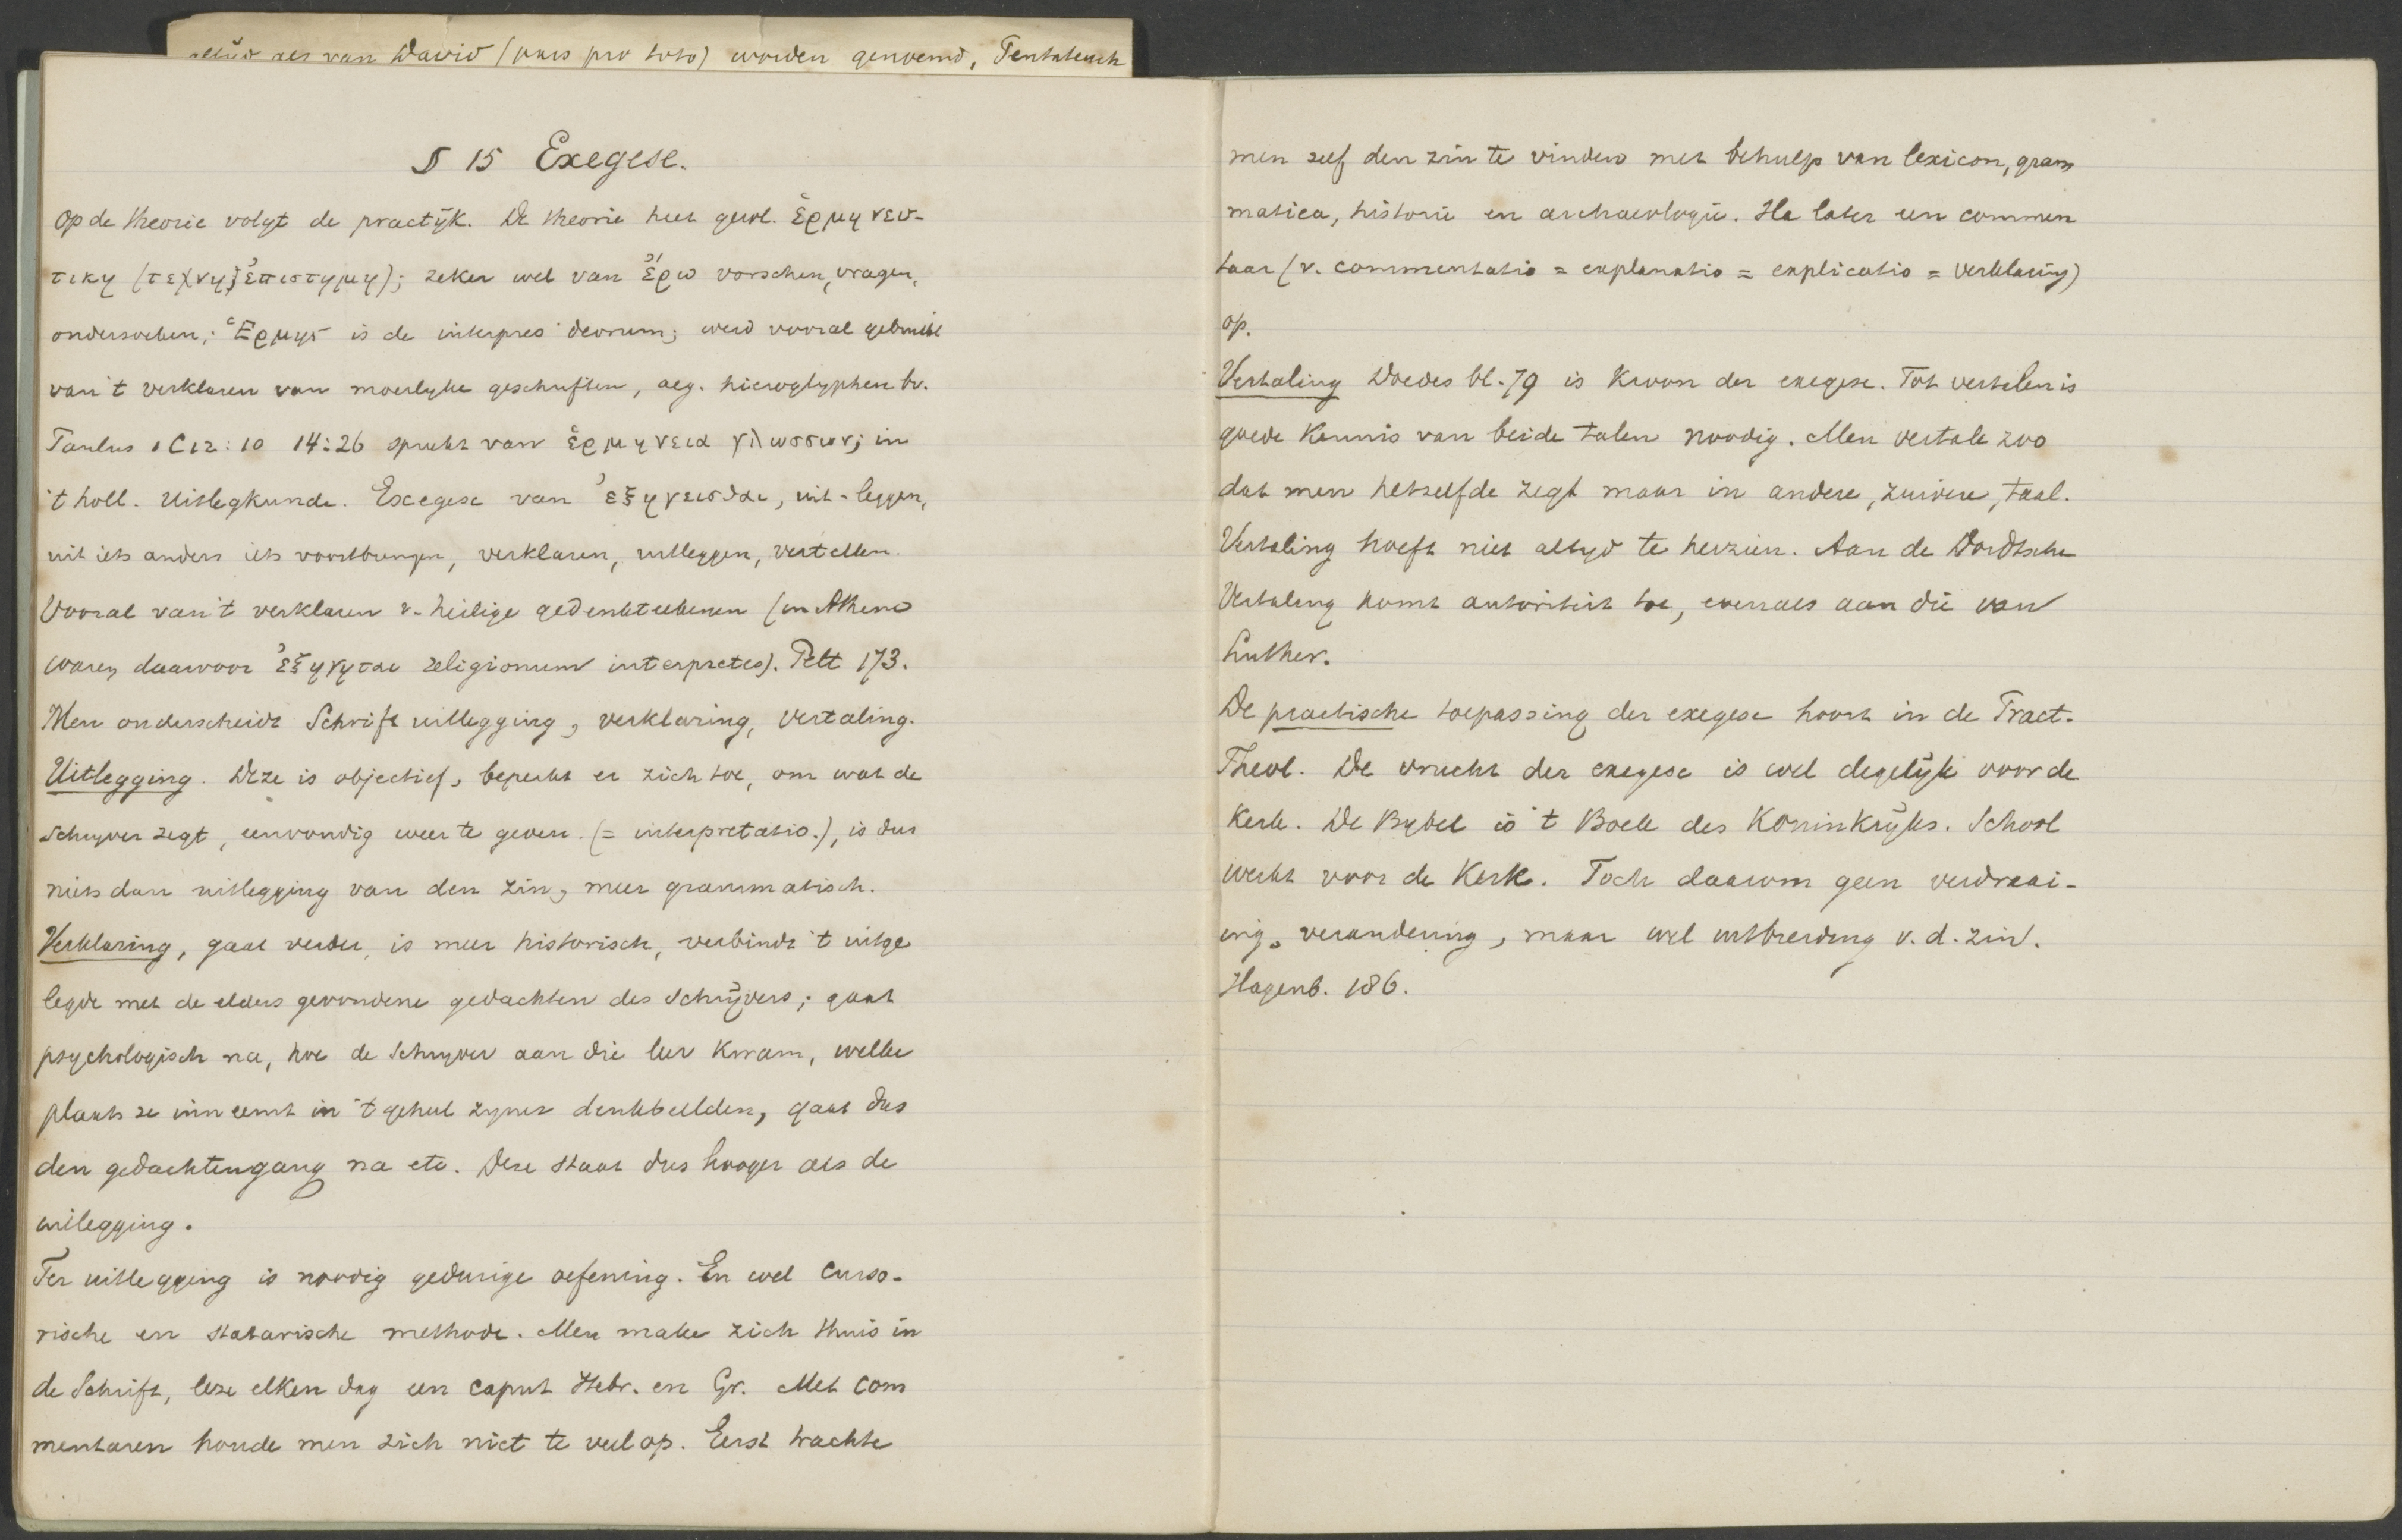 altijd als van David (pars pro toto) worden genoemd, Pentateuch
§ 15 Exegese.
Op de theorie volgt de practijk. De theorie heet gew. ἑρμηνευ-
τικη (τεχνη, ἐπιστημη); zeker wel van ἔρω vorschen, vragen,
onderzoeken; Ἑρμης is de interpres deorum; werd vooral gebruikt
van 't verklaren van moeilyke geschriften, aeg. hieroglyphen bv.
Paulus 1 C 12:10 14:26 spreekt van ἑρμηνεια γλωσσων; in
't holl. Uitlegkunde. Exegese van ἐξηγεισθαι, uit-leggen,
uit iets anders iets voortbrengen, verklaren, uitleggen, vertellen.
Vooral van 't verklaren v. heilige gedenkteekenen (in Athene
waren daarvoor ἐξηγηται religionum interpretes). Pelt 173.
Men onderscheidt Schriftuitlegging, verklaring, vertaling.
Uitlegging. Deze is objectief, beperkt er zich toe, om wat de
Schryver zegt, eenvoudig weer te geven. (= interpretatio.), is dus
niets dan uitlegging van den zin, meer grammatisch.
Verklaring, gaat verder, is meer historisch, verbindt 't uitge
legde met de elders gevondene gedachten des Schrijvers; gaat
psychologisch na, hoe de Schryver aan die leer kwam, welke
plaats ze inneemt in 't geheel zyner denkbeelden, gaat dus
den gedachtengang na etc. Deze staat dus hooger als de
uitlegging.
Ter uitlegging is noodig gedurige oefening. En wel curso-
rische en statarische methode. Men make zich thuis in
de Schrift, leze elken dag een caput Hebr. en Gr. Met com
mentaren houde men zich niet te veel op. Eerst trachte
men zelf den zin te vinden met behulp van lexicon, gram
matica, historie en archaeologie. Sla later een commen
taar (v. commentatio = explanatio = explicatio = verklaring)
op.
Vertaling Doedes bl. 79 is Kroon der exegese. Tot vertalen is
goede Kennis van beide talen noodig. Men vertale zoo
dat men hetzelfde zegt maar in andere, zuivere, taal.
Vertaling hoeft niet altyd te herzien. Aan de Dordtsche
Vertaling komt autoriteit toe, evenals aan die van
Luther.
De practische toepassing der exegese hoort in de Pract.
Theol. De vrucht der exegese is wel degelijk voor de
Kerk. De Bybel is 't Boek des Koninkrijks. School
werkt voor de Kerk. Toch daarom geen verdraai-
ing, verandering, maar wel uitbreiding v. d. zin.
Hagenb. 186.